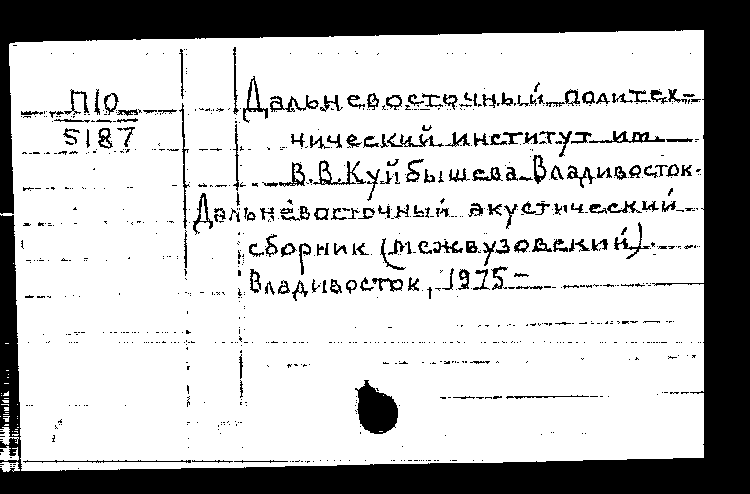 П10
5187
Дальневосточный политех-
нический институт им.
В.В.Куйбышева. Владивосток.
Дальневосточный акустический
сборник (межвузовский).
Владивосток, 1975 –